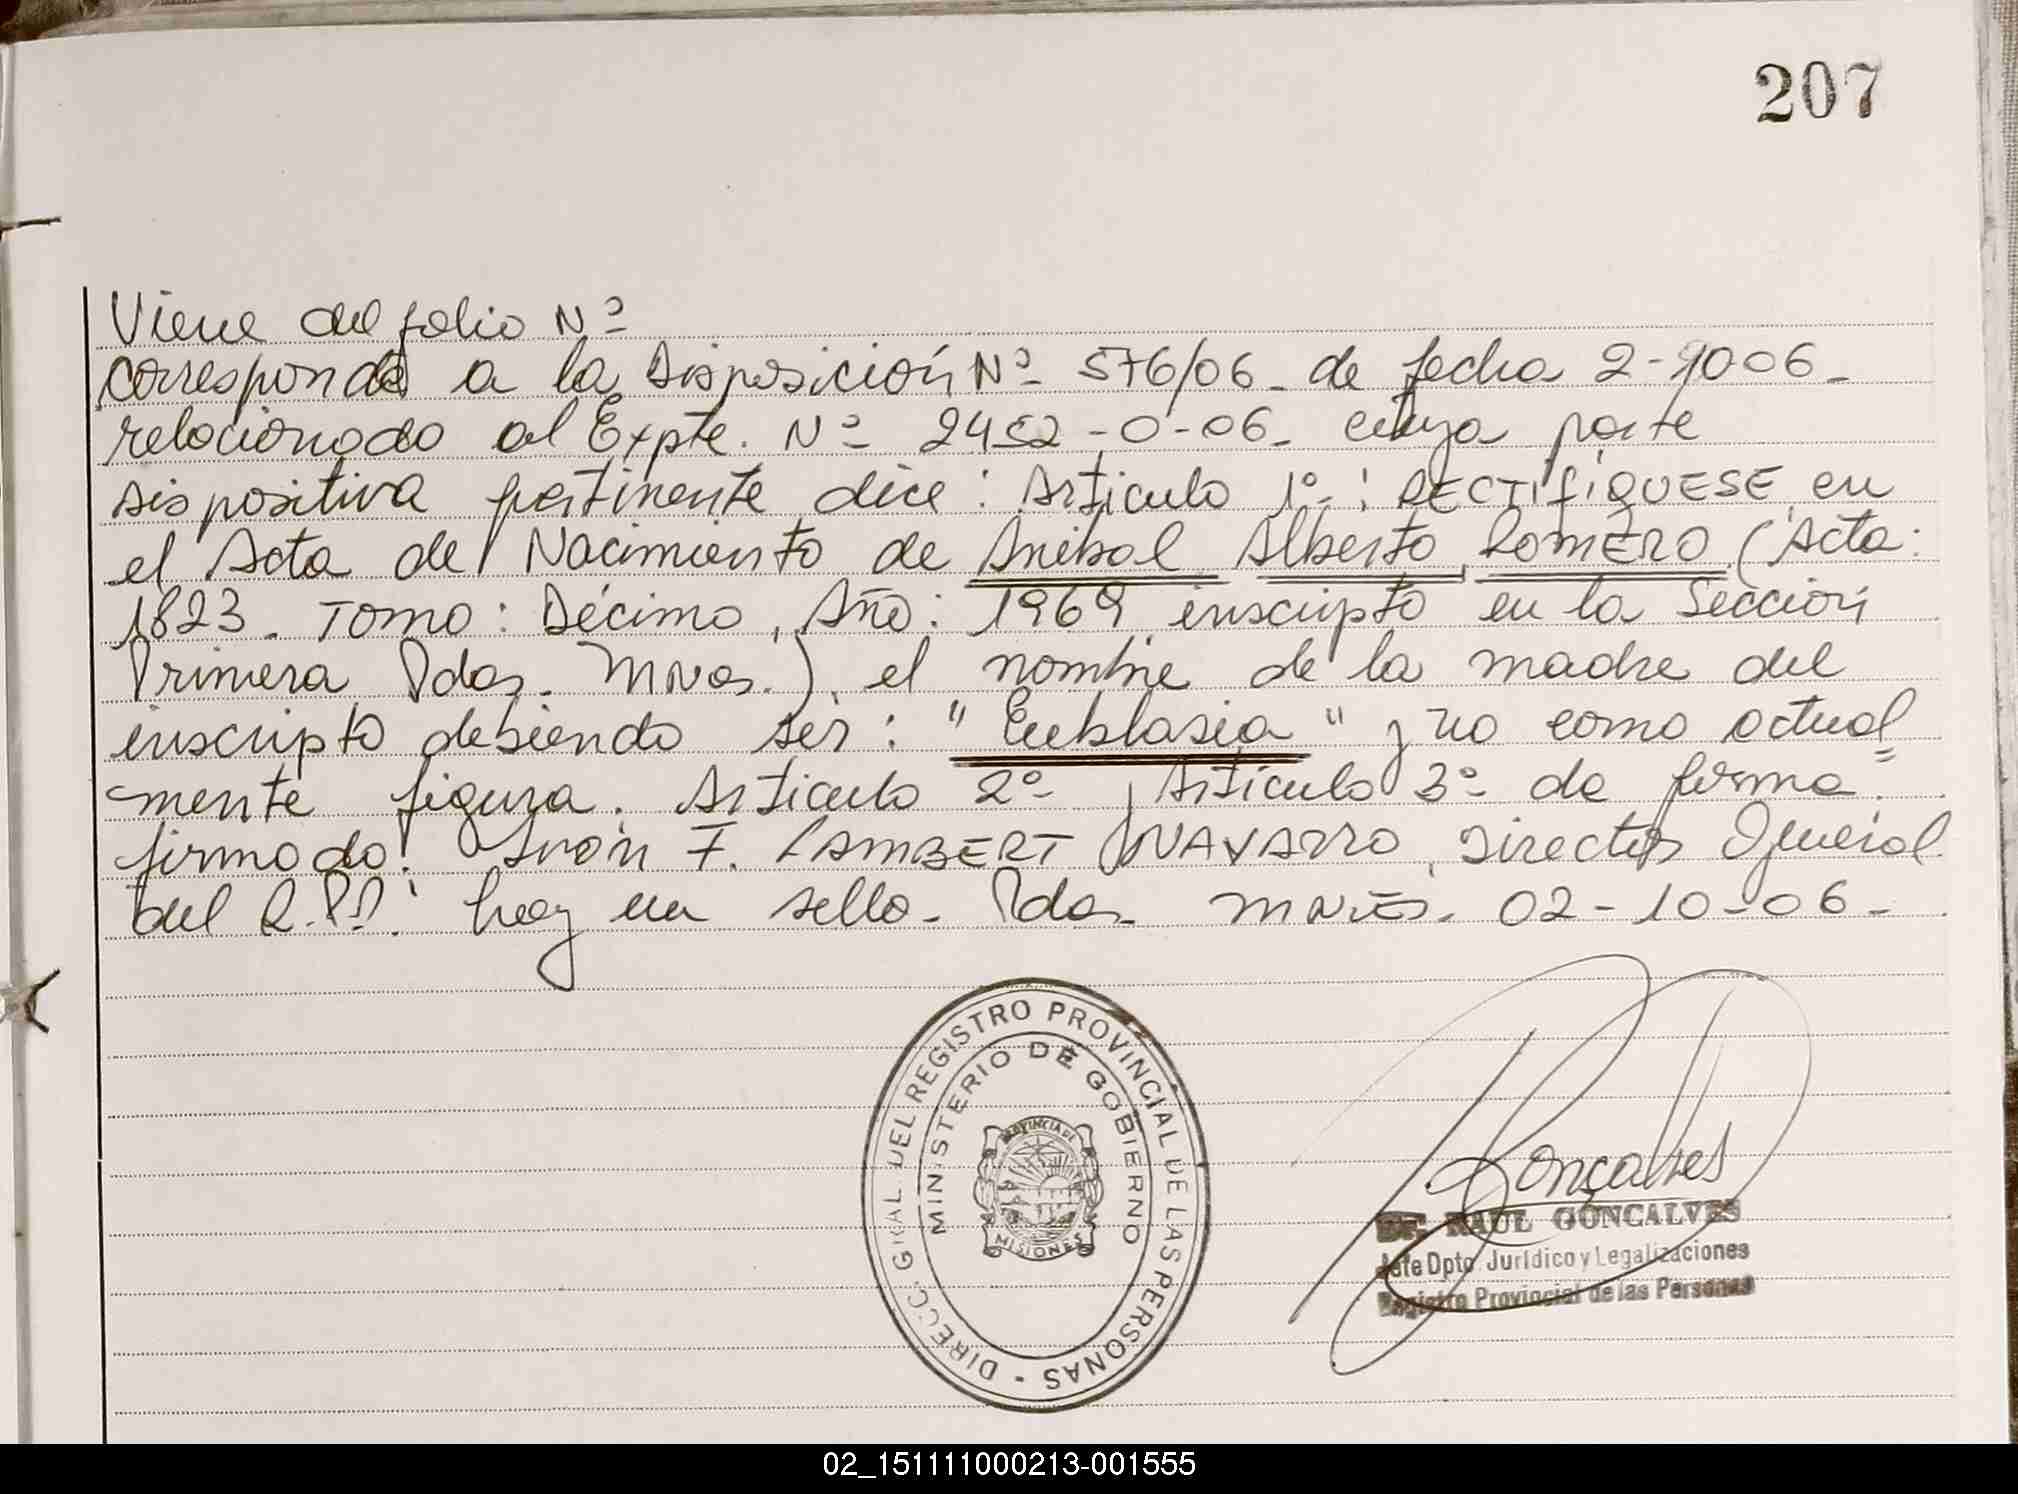 207
Viene del folio Nº
corresponde a la Disposición Nº 576/06 - de fecha 2-
relacionado al Expte. Nº 2452-0-06 - cuya parte
dispositiva pertinente dice: Artículo 1º: RECTIFÍQUESE en
el Acta de Nacimiento de Anibal Alberto ROMERO (Acta:
1823. TOMO: Décimo, Año: 1969, inscripto en la Sección
Primera Pdas. MNes.). el nombre de la madre del
inscripto debiendo ser: " Eublasia " y no como actual=
mente figura. Artículo 2º Artículo 3º de forma.
firmado: Iván F. LAMBERT NAVARRO, Director General
del R.P.P. hay un sello - Pdas. MNES. 02-10-06 -
DIRECC. GRAL. DEL REGISTRO PROVINCIAL DE LAS PERSONAS -
MINISTERIO DE GOBIERNO
PROVINCIA DE
MISIONES
Gonçalves
Dr. RAUL GONCALVES
Jefe Dpto. Jurídico y Legalizaciones
Registro Provincial de las Personas
02_151111000213-001555